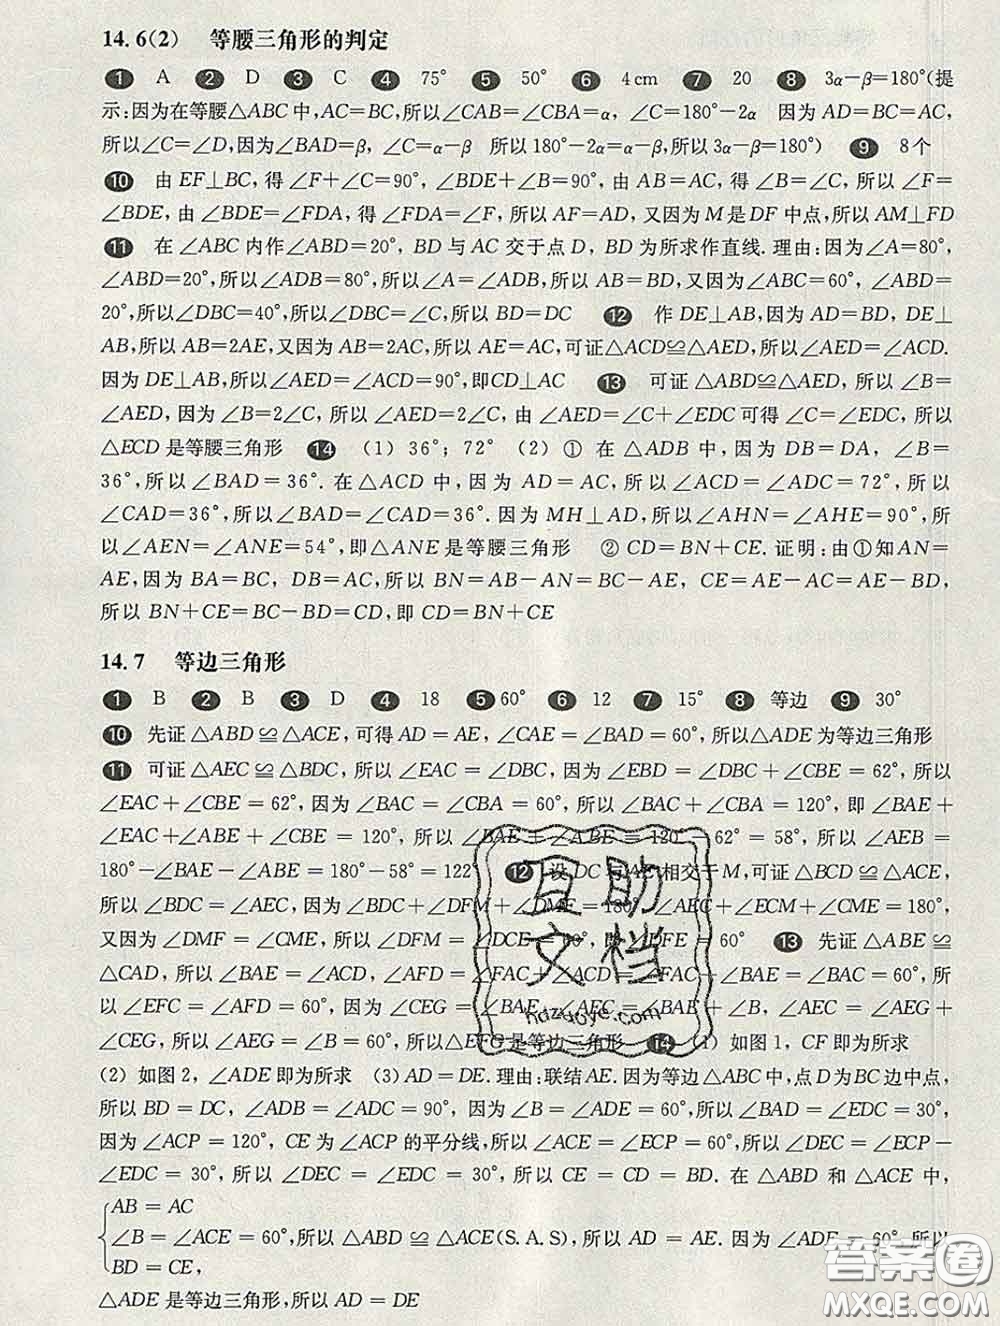 14.6(2) 等腰三角形的判定
1 A 2 D 3 C 4 75° 5 50° 6 4cm 7 20 8 3α－β＝180°(提
示:因为在等腰△ABC中,AC＝BC,所以∠CAB＝∠CBA＝α, ∠C＝180°－2α 因为AD＝BC＝AC,
所以∠C＝∠D,因为∠BAD＝β, ∠C＝α－β 所以180°－2α＝α－β,所以3α－β＝180°) 9 8个
10 由EF⊥BC, 得∠F＋∠C＝90°, ∠BDE＋∠B＝90°, 由AB＝AC, 得∠B＝∠C, 所以∠F＝
∠BDE, 由∠BDE＝∠FDA, 得∠FDA＝∠F, 所以AF＝AD, 又因为M是DF中点,所以AM⊥FD
11 在∠ABC内作∠ABD＝20°, BD与AC交于点D, BD为所求作直线. 理由:因为∠A＝80°,
∠ABD＝20°,所以∠ADB＝80°,所以∠A＝∠ADB,所以AB＝BD,又因为∠ABC＝60°, ∠ABD＝
20°,所以∠DBC＝40°,所以∠DBC＝∠C,所以BD＝DC 12 作DE⊥AB,因为AD＝BD, DE⊥
AB,所以AB＝2AE,又因为AB＝2AC,所以AE＝AC,可证△ACD≌△AED,所以∠AED＝∠ACD.
因为DE⊥AB,所以∠AED＝∠ACD＝90°,即CD⊥AC 13 可证△ABD≌△AED, 所以∠B＝
∠AED, 因为∠B＝2∠C, 所以∠AED＝2∠C, 由∠AED＝∠C＋∠EDC可得∠C＝∠EDC, 所以
△ECD是等腰三角形 14 (1) 36°; 72° (2) ① 在△ADB中, 因为DB＝DA, ∠B＝
36°, 所以∠BAD＝36°. 在△ACD中, 因为AD＝AC, 所以∠ACD＝∠ADC＝72°, 所以
∠CAD＝36°, 所以∠BAD＝∠CAD＝36°. 因为MH⊥AD, 所以∠AHN＝∠AHE＝90°, 所
以∠AEN＝∠ANE＝54°, 即△ANE是等腰三角形 ② CD＝BN＋CE. 证明: 由①知AN＝
AE, 因为BA＝BC, DB＝AC, 所以BN＝AB－AN＝BC－AE, CE＝AE－AC＝AE－BD,
所以BN＋CE＝BC－BD＝CD, 即CD＝BN＋CE
14.7 等边三角形
1 B 2 B 3 D 4 18 5 60° 6 12 7 15° 8 等边 9 30°
10 先证△ABD≌△ACE, 可得AD＝AE, ∠CAE＝∠BAD＝60°, 所以△ADE为等边三角形
11 可证△AEC≌△BDC, 所以∠EAC＝∠DBC, 因为∠EBD＝∠DBC＋∠CBE＝62°, 所以
∠EAC＋∠CBE＝62°, 因为∠BAC＝∠CBA＝60°, 所以∠BAC＋∠CBA＝120°, 即∠BAE＋
∠EAC＋∠ABE＋∠CBE＝120°, 所以∠BAE＋∠ABE＝120°－62°＝58°, 所以∠AEB＝
180°－∠BAE－∠ABE＝180°－58°＝122° 12 设DC与AE相交于M, 可证△BCD≌△ACE,
所以∠BDC＝∠AEC, 因为∠BDC＋∠DFM＋∠DMF＝180°, ∠AEC＋∠ECM＋∠CME＝180°,
又因为∠DMF＝∠CME, 所以∠DFM＝∠DCE＝60°, 即∠DFE＝60° 13 先证△ABE≌
△CAD, 所以∠BAE＝∠ACD, ∠AFD＝∠FAC＋∠ACD＝∠FAC＋∠BAE＝∠BAC＝60°, 所
以∠EFC＝∠AFD＝60°, 因为∠CEG＝∠BAE, ∠AEC＝∠BAE＋∠B, ∠AEC＝∠AEG＋
∠CEG, 所以∠AEG＝∠B＝60°, 所以△EFG是等边三角形 14 (1) 如图1, CF即为所求
(2) 如图2, ∠ADE即为所求 (3) AD＝DE. 理由:联结AE. 因为等边△ABC中,点D为BC边中点,
所以BD＝DC, ∠ADB＝∠ADC＝90°, 因为∠B＝∠ADE＝60°, 所以∠BAD＝∠EDC＝30°,
因为∠ACP＝120°, CE为∠ACP的平分线,所以∠ACE＝∠ECP＝60°,所以∠DEC＝∠ECP－
∠EDC＝30°, 所以∠DEC＝∠EDC＝30°, 所以CE＝CD＝BD. 在△ABD和△ACE中,
AB＝AC
∠B＝∠ACE＝60°, 所以△ABD≌△ACE(S.A.S), 所以AD＝AE. 因为∠ADE＝60°, 所以
BD＝CE,
△ADE是等边三角形, 所以AD＝DE
互助
文档
hdzuoye.com
答案圈
MXQE.COM